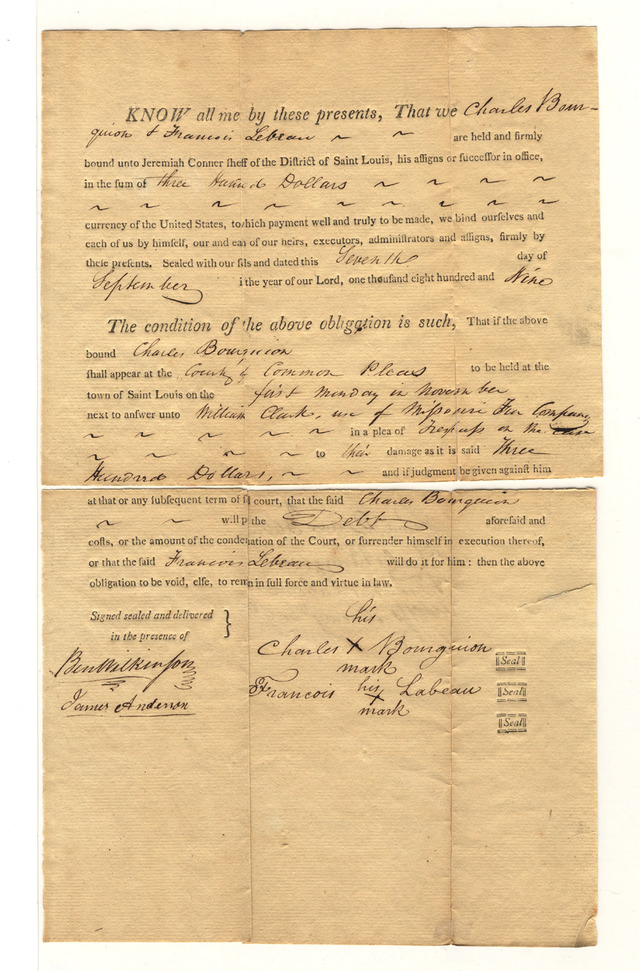 KNOW all me by these presents, That we Charles Bour-
guion & Francois Lebeau ~ ~ are held and firmly
bound unto Jeremiah Conner sheff of the District of Saint Louis, his assigns or successor in office,
in the sum of three Hunnd Dollars ~ ~ ~ ~ ~
~ ~ ~ ~ ~ ~ ~ ~ ~ ~
currency of the United States, to hich payment well and truly to be made, we bind ourselves and
each of us by himself, our and eac of our heirs, executors, administrators and assigns, firmly by
these presents. Sealed with our sls and dated this Seventh day of
September i the year of our Lord, one thousand eight hundred and Nine
The condition of the above obligation is such, That if the above
bound Charles Bourguion
shall appear at the Court of Common Pleas to be held at the
town of Saint Louis on the first Monday in November
next to answer unto William Clark, use of Missouri Fur Company
~ ~ ~ ~ ~ ~ in a plea of Trespass on the case
~ ~ ~ ~ ~ to their damage as it is said Three
Hundred Dollars, ~ ~ and if judgment be given against him
at that or any subsequent term of s court, that the said Charles Bourguion
~ ~ will p the Debt aforesaid and
costs, or the amount of the condenation of the Court, or surrender himself in execution thereof,
or that the said Francois Lebeau will do it for him : then the above
obligation to be void, else, to remn in full force and virtue in law.
Signed sealed and delivered
in the presence of
Ben Wilkinson
James Anderson
his
Charles X Bourguion Seal
mark
Francois his Labeau Seal
X
mark Seal